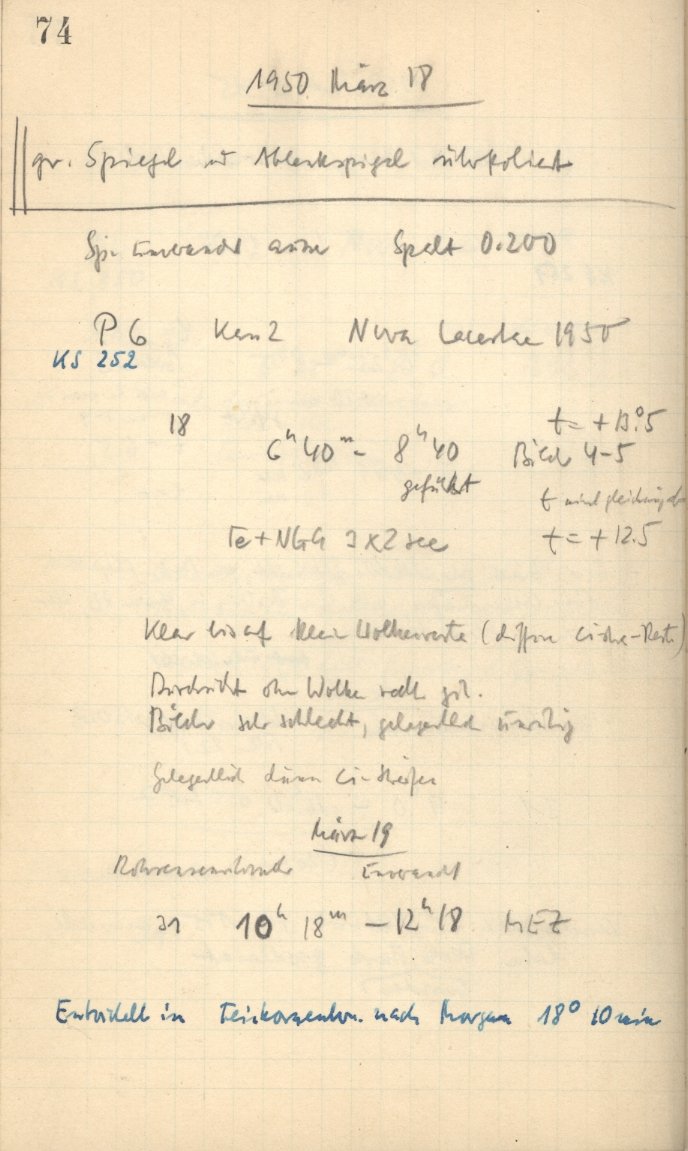 74
1950 März 18
gr. Spiegel u Ablenkspiegel überpoliert
Sp. Spalt 0.200
P 6 Nova Lacertae 1950
KS 252
18
t = + 13°.5
6ʰ 40ᵐ - 8ʰ 40 Bilder 4-5
geführt
t wird gleichmässig
Fe + NGG 3 x 2 sec t = + 12.5
Klar bis auf kleine Wolkenreste (diffuse Cirrus-Reste)
Durchsicht ohne Wolken recht gut.
Bilder sehr schlecht, gelegentlich unruhig
Gelegentlich dünne Ci-Streifen
März 19
31 10ʰ 18ᵐ - 12ʰ 18 MEZ
Entwickelt in Feinkornentw. nach Morgan 18° 10 min